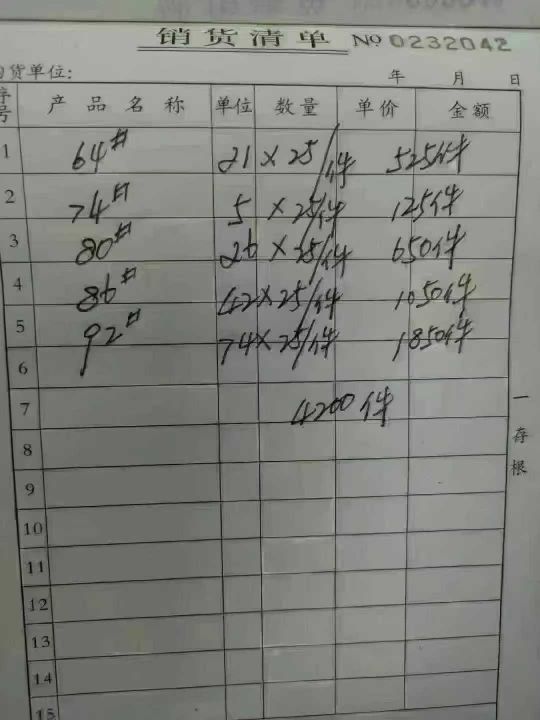 销货清单 №0232042
购货单位: 年 月 日
序号 产品名称 单位 数量 单价 金额
1 64# 21 × 25/件 525件
2 74# 5 × 25/件 125件
3 80# 26 × 25/件 650件
4 86# 42 × 25/件 1050件
5 92# 74 × 25/件 1850件
6
7 4200件
8
9
10
11
12
13
14
15
一存根